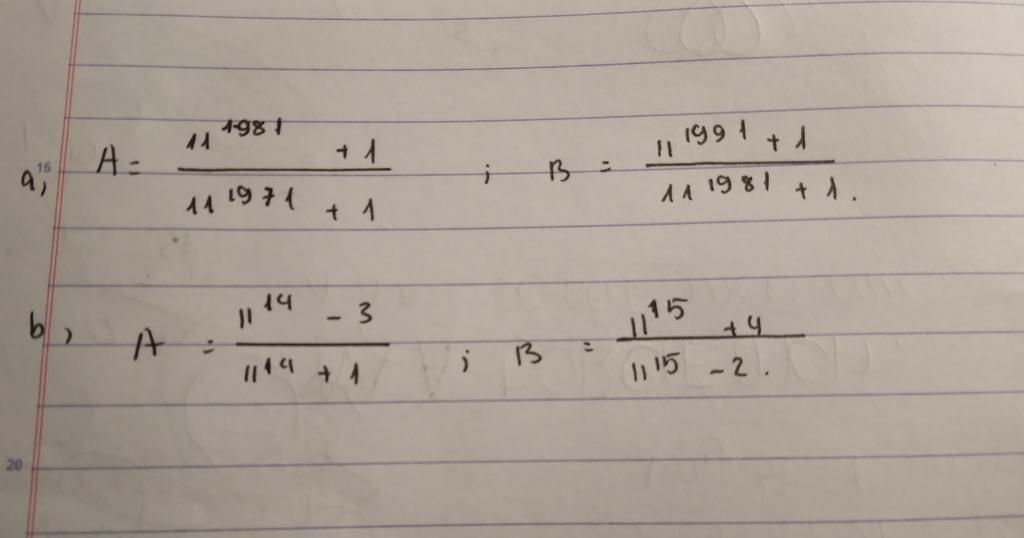 a, A = \frac{11^{1981} + 1}{11^{1971} + 1} ; B = \frac{11^{1991} + 1}{11^{1981} + 1}.
b, A = \frac{11^{14} - 3}{11^{14} + 1} ; B = \frac{11^{15} + 4}{11^{15} - 2}.
15
20